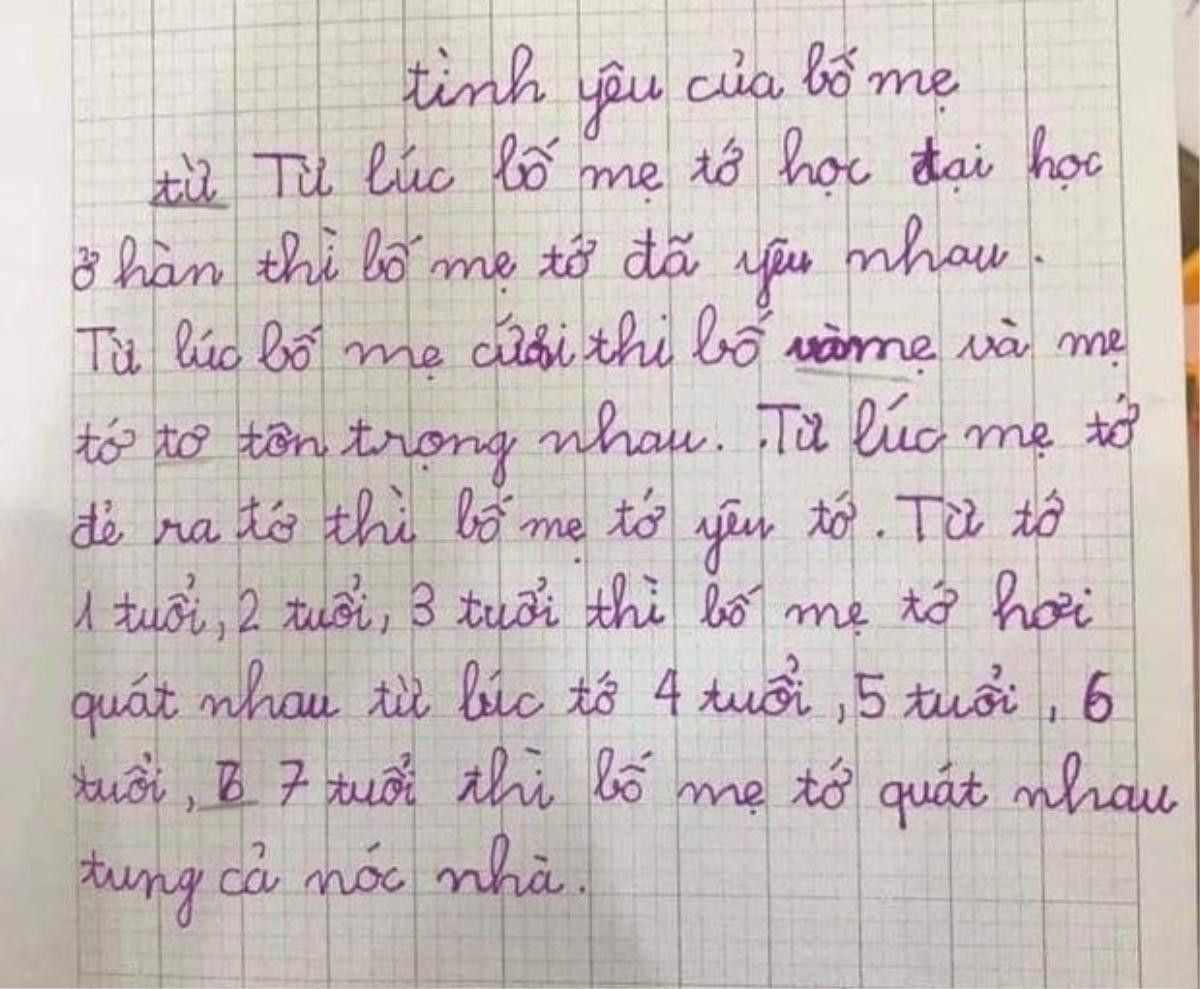 tình yêu của bố mẹ
từ Từ lúc bố mẹ tớ học đại học
ở hàn thì bố mẹ tớ đã yêu nhau.
Từ lúc bố mẹ cưới thì bố vàmẹ và mẹ
tớ tơ tôn trọng nhau. Từ lúc mẹ tớ
đẻ ra tớ thì bố mẹ tớ yêu tớ. Từ tớ
1 tuổi, 2 tuổi, 3 tuổi thì bố mẹ tớ hơi
quát nhau từ lúc tớ 4 tuổi, 5 tuổi, 6
tuổi, B 7 tuổi thì bố mẹ tớ quát nhau
tung cả nóc nhà.